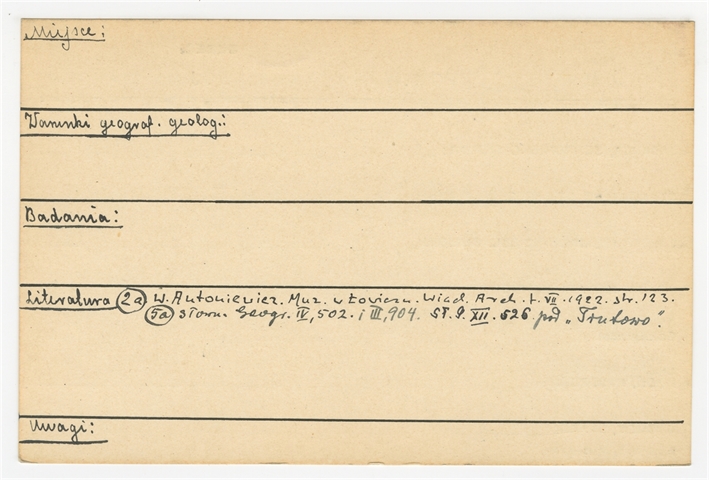 Miejsce:
Warunki geograf. geolog.:
Badania:
Literatura (2a) W. Antoniewicz. Muz. w Łowiczu. Wiad. Arch. t. VII. 1922. str. 123.
(5a) Słown. Geogr. IV, 502. i III, 904. Sł. G. XII. 526 pod „Trutowo".
Uwagi: